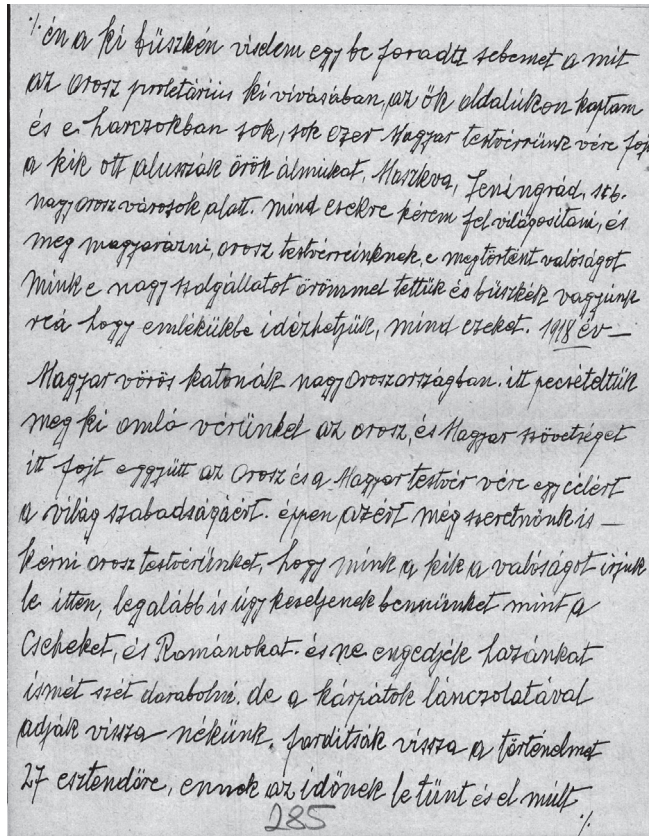 ·/. én a ki büszkén viselem egy be foradtt sebemet a mit
az orosz proletáriús ki vívásában, az ők oldalúkon kaptam
és e harczokban sok, sok ezer Magyar testvérrünk vére fojt
a kik ott alusszák örök álmúkat, Moszkva, Leningrád, stb.
nagy orosz városok alatt. mind ezekre kérem fel világosítani, és
meg magyarázni, orosz testvérreinknek, e megtörtént valóságot
Mink e nagy szolgállatot örömmel tettük és büszkék vagyunk
reá hogy emlékükbe idézhetjük, mind ezeket. 1918 év —
Magyar vörös katonák nagy Oroszországban. itt pecsételtük
meg ki omló vérünkel az orosz, és Magyar szövetséget
itt fojt eggyütt az Orosz és a Magyar testvér vére egy célért
a világ szabadságáért. éppen azért még szeretnönk is —
kérni orosz testvérünket, hogy mink a kik a valóságot írjuk
le itten, legalább is úgy kezeljenek bennünket mint a
Cseheket, és Románokat. és ne engedjék hazánkat
ismét szét darabolni, de a kárpátok lánczolatával
adják vissza nékünk. fardítsák vissza a történelmet
27 esztendőre, ennek az időnek le tünt és el múlt
·/.
285